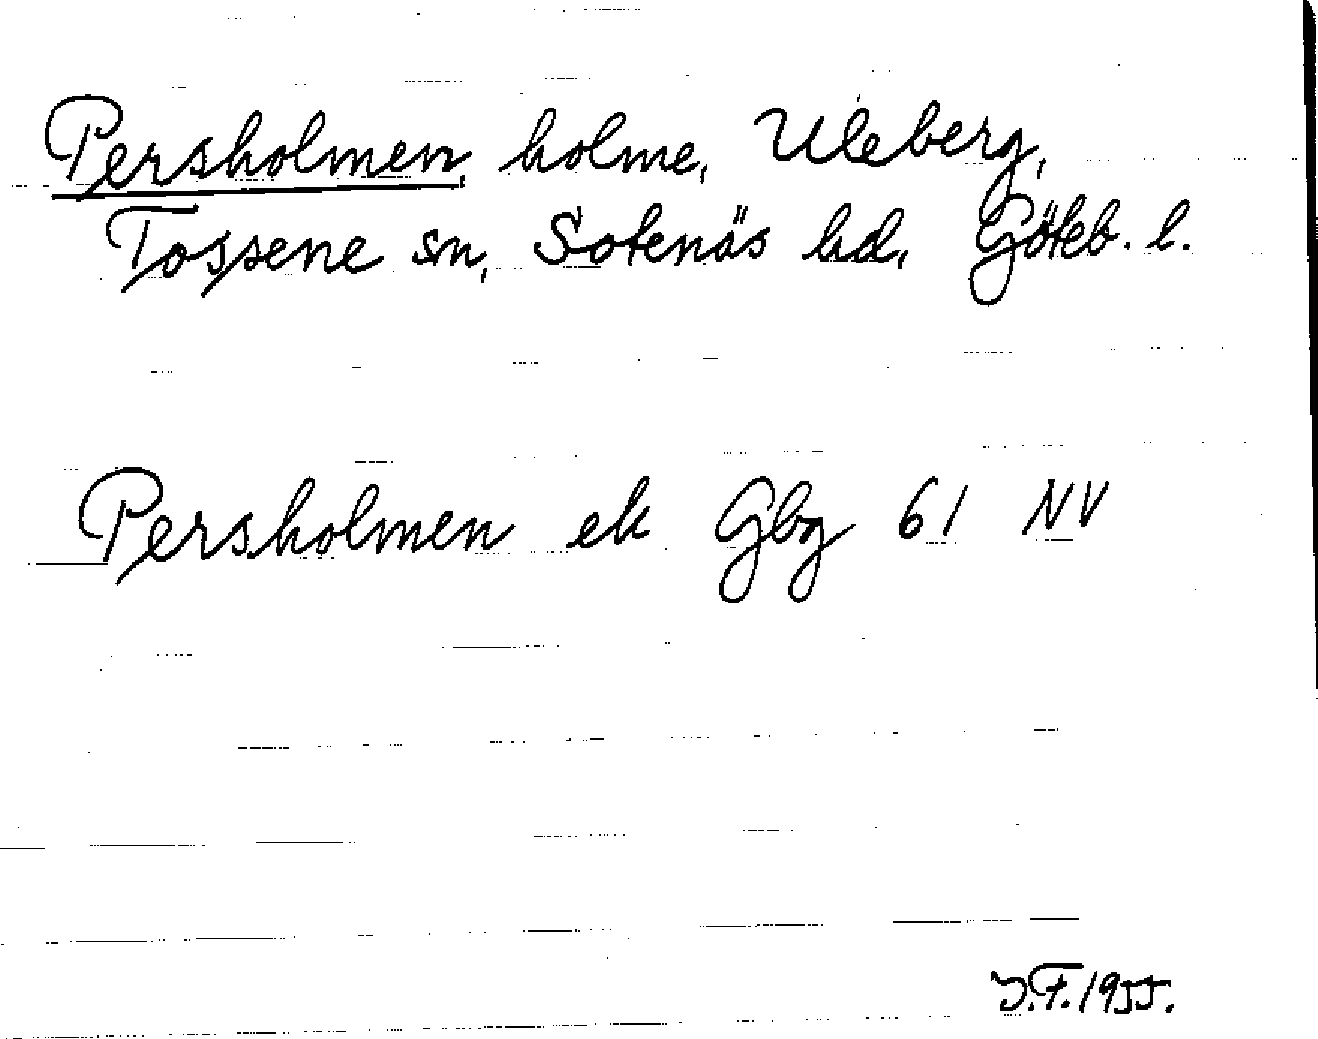 Persholmen, holme, Uleberg,
Tossene sn, Sotenäs hd, Göteb. l.
Persholmen ek Gbg 61 NV
J.F. 1955.